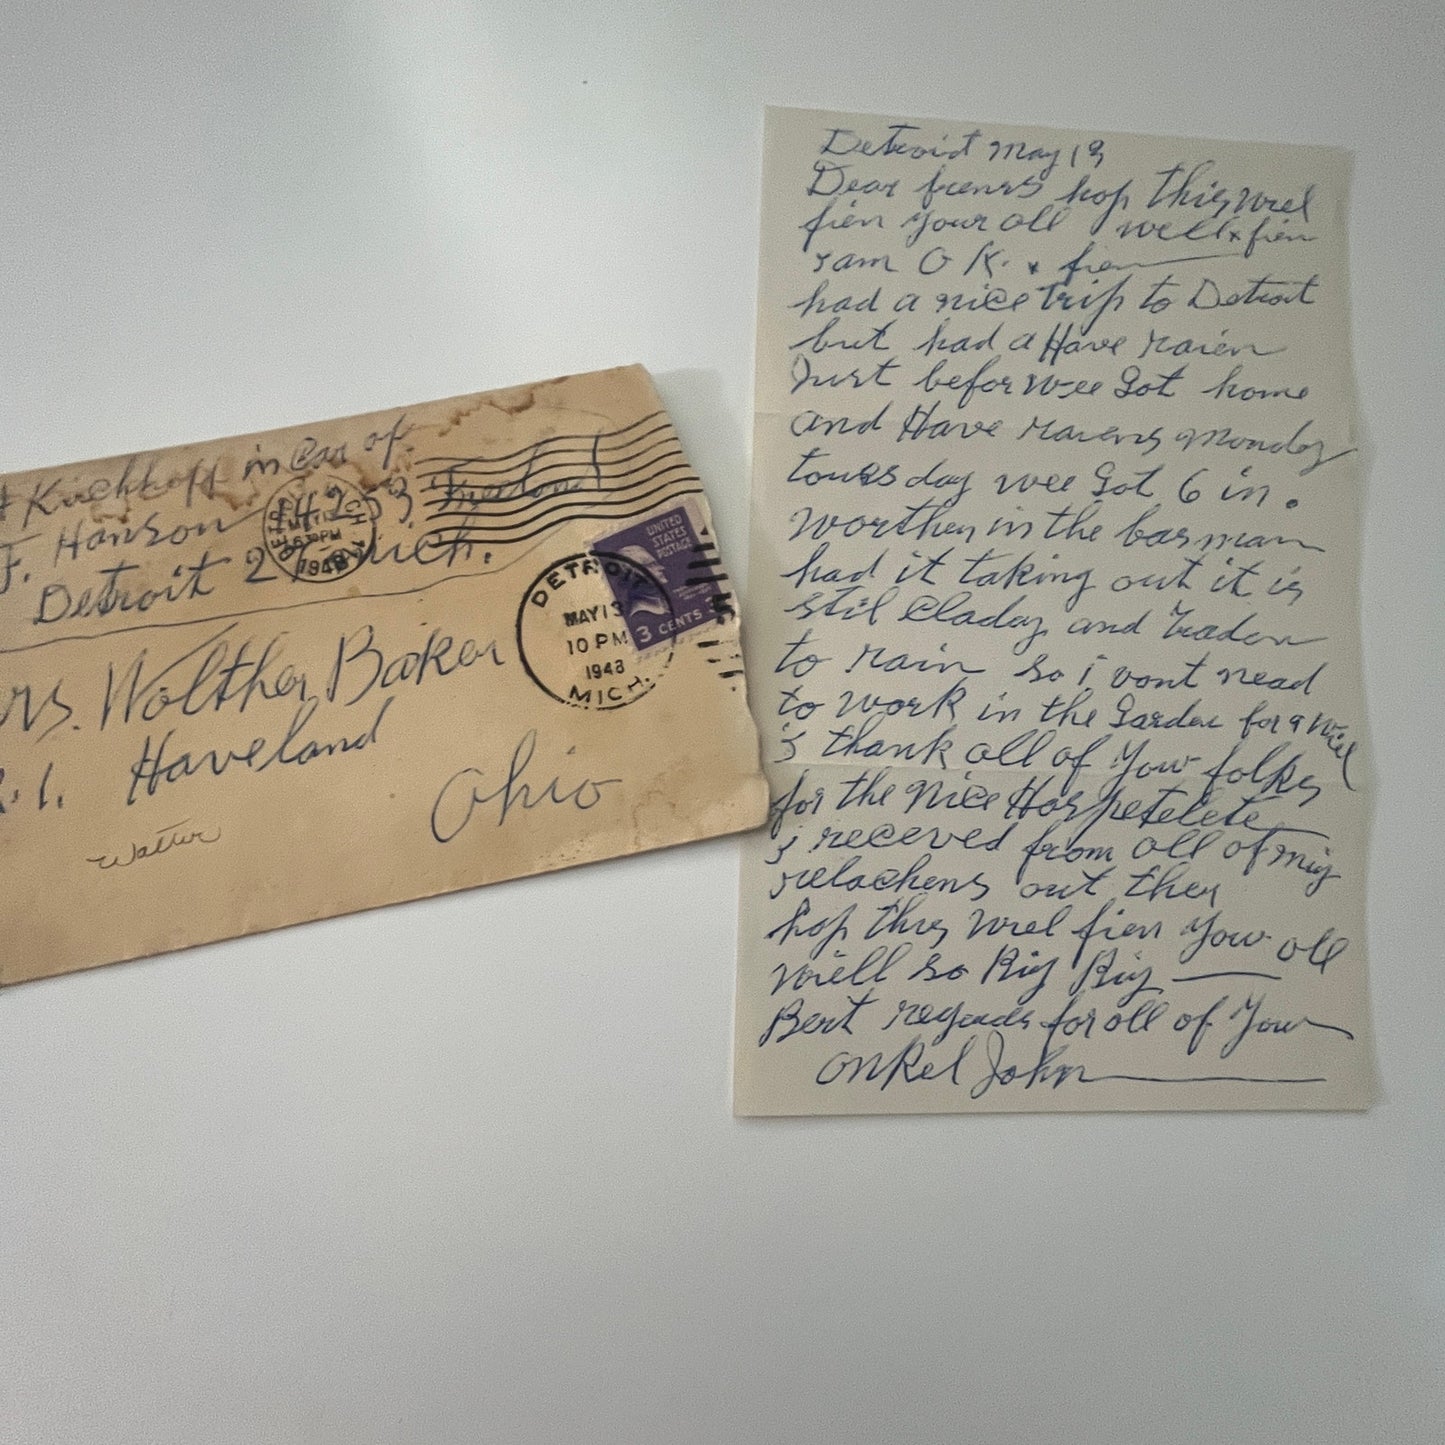 Kirchhoff in Car of.
F. Hanson 14253 Freeland
Detroit 2 Mich.
rs. Walther Baker
R. 1. Haveland
Ohio
Walter
DETROIT
MAY 13
10 PM
1948
MICH.
UNITED
STATES
POSTAGE
3 CENTS 3
Detroid May 13
Dear friens hop this wiel
fien your all well & fien
i am O K. & fien
had a nice trip to Detroit
but had a Have raien
Just befor wee Got home
and Have raiens monday
tousday wee Got 6 in.
worther in the basman
had it taking out it is
stil Cladoy and
to rain so i vont nead
to work in the Garden for a wiel
i thank all of You folks
for the nice Hospetelete
i receved from all of miy
relachens out ther
hop this wiel fien You all
wiell so Biy Biy
Best regards for all of You
Onkel John